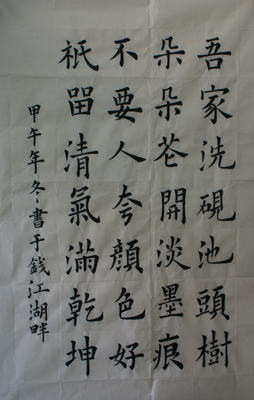 吾家洗硯池頭樹
朶朶花開淡墨痕
不要人夸顏色好
祇留清氣滿乾坤
甲午年冬書于錢江湖畔